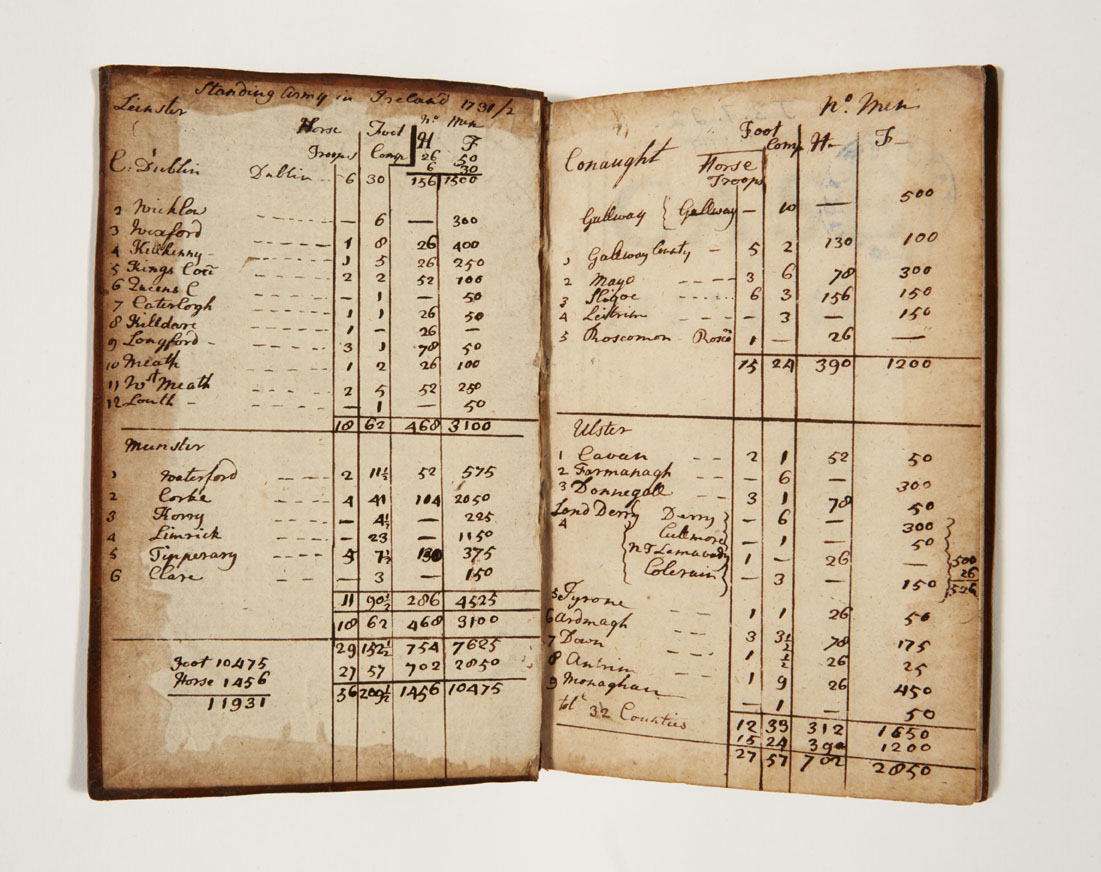 Standing Army in Ireland 1731/2
Leinster
Horse Foot No Men
Troops Comp H F
26 50
6 30
C. Dublin Dublin 6 30 156 1500
2 Wicklow — 6 — 300
3 Wexford 1 8 26 400
4 Kilkenny 1 5 26 250
5 Kings Coü 2 2 52 100
6 Queens C — 1 — 50
7 Caterlogh 1 1 26 50
8 Killdare 1 — 26 —
9 Longford 3 1 78 50
10 Meath 1 2 26 100
11 Wst Meath 2 5 52 250
12 Louth — 1 — 50
18 62 468 3100
Munster
1 Waterford 2 11½ 52 575
2 Corke 4 41 104 2050
3 Kerry — 4½ — 225
4 Limrick — 23 — 1150
5 Tipperary 5 7½ 130 375
6 Clare — 3 — 150
11 90½ 286 4525
18 62 468 3100
29 152½ 754 7625
27 57 702 2850
56 209½ 1456 10475
Foot 10475
Horse 1456
11931
No. Men
Conaught Horse Troops Foot Comp H F
Gallway { Gallway — 10 — 500
1 Gallway County 5 2 130 100
2 Mayo 3 6 78 300
3 Sligoe 6 3 156 150
4 Leitrim — 3 — 150
5 Roscomon Rosco 1 — 26 —
15 24 390 1200
Ulster
1 Cavan 2 1 52 50
2 Farmanagh — 6 — 300
3 Donnegall 3 1 78 50
4 Lond Derry { Derry — 6 — 300
Cullmore — 1 — 50
N T Lemavady 1 — 26 —
Colerain — 3 — 150
500
26
526
5 Tyrone 1 1 26 50
6 Ardmagh 3 3½ 78 175
7 Down 1 ½ 26 25
8 Antrim 1 9 26 450
9 Monaghan — 1 — 50
totl 32 Counties 12 33 312 1650
15 24 390 1200
27 57 702 2850